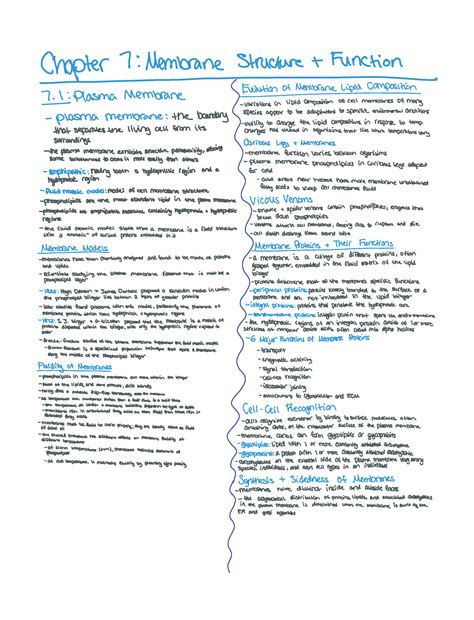 Chapter 7: Membrane Structure + Function
7.1: Plasma Membrane
- plasma membrane: the boundary
that separates the living cell from its
surroundings
- the plasma membrane exhibits selective permeability, allowing
some substances to cross it more easily than others
- amphipathic: having both a hydrophilic region and a
hydrophobic region
- fluid mosaic model: model of cell membrane structure
- phospholipids are the most abundant lipid in the plasma membrane
- phospholipids are amphipathic molecules, containing hydrophobic + hydrophilic
regions
- the fluid mosaic model states that a membrane is a fluid structure
with a "mosaic" of various proteins embedded in it
Membrane Models
- membranes have been chemically analyzed and found to be made of proteins
and lipids
- scientists studying the plasma membrane reasoned that it must be a
phospholipid bilayer
the phospholipid bilayer lies between 2 layers of globular proteins
membrane proteins, which have hydrophilic + hydrophobic regions
proteins dispersed within the bilayer, with only the hydrophilic regions exposed to
water
- Freeze-fracture studies of the plasma membrane supported the fluid mosaic model
along the middle of the phospholipid bilayer
Fluidity of Membranes
- phospholipids in the plasma membrane can move within the bilayer
- most of the lipids, and some proteins, drift laterally
- as temperatures cool, membranes switch from a fluid state to a solid state
fatty acids
- membranes must be fluid to work properly; they are usually about as fluid
as salad oil
- the steroid cholesterol has different effects on membrane fluidity at
different temperatures
- at warm temperatures (37°C), cholesterol restrains movement of
phospholipids
- at cool temperatures, it maintains fluidity by preventing tight packing
Evolution of Membrane Lipid Composition
- variations in lipid composition of cell membranes of many
species appear to be adaptations to specific environmental conditions
- ability to change the lipid compositions in response to temp
changes has evolved in organisms that live where temperatures vary
Caribou Legs + Membranes
- membrane function varies between organisms
- plasma membrane phospholipids in caribou legs adapted
for cold
- cold areas near hooves have more membrane unsaturated
fatty acids to keep cell membranes fluid
Vicous Venoms
- snake + spider venoms contain phospholipases, enzymes that
break down phospholipids
- venoms attack cell membranes, causing cells to rupture and die
Membrane Proteins + Their Functions
- a membrane is a collage of different proteins, often
grouped together, embedded in the fluid matrix of the lipid
bilayer
- proteins determine most of the membranes specific functions
- peripheral proteins: proteins loosely bounded to the surface of a
membrane and are not embedded in the lipid bilayer
- integral proteins: proteins that penetrate the hydrophobic core
- transmembrane proteins: integral protein that spans the entire membrane
- the hydrophobic regions of an integral protein consist of 1 or more
stretches of nonpolar amino acids often coiled into alpha helices
- 6 Major Functions of Membrane Proteins
- transport
- enzymatic activity
- signal transduction
- cell-cell recognition
- intercellular joining
- attachment to cytoskeleton and ECM
Cell-Cell Recognition
- cells recognize each other by binding to surface molecules, often
containing carbs, on the extracellular surface of the plasma membrane
- membrane carbs can form glycolipids or glycoproteins
- glycolipids: lipids with 1 or more covalently attached carbohydrates
- glycoproteins: a protein with 1 or more covalently attached carbohydrates
- carbohydrates on the external side of the plasma membrane vary among
species, individuals, and even cell types in an individual
Synthesis + Sidedness of Membranes
- membranes have distinct inside and outside faces
- the asymmetrical distribution of proteins, lipids, and associated carbohydrates
in the plasma membrane is determined when the membrane is built by the
ER and golgi apparatus